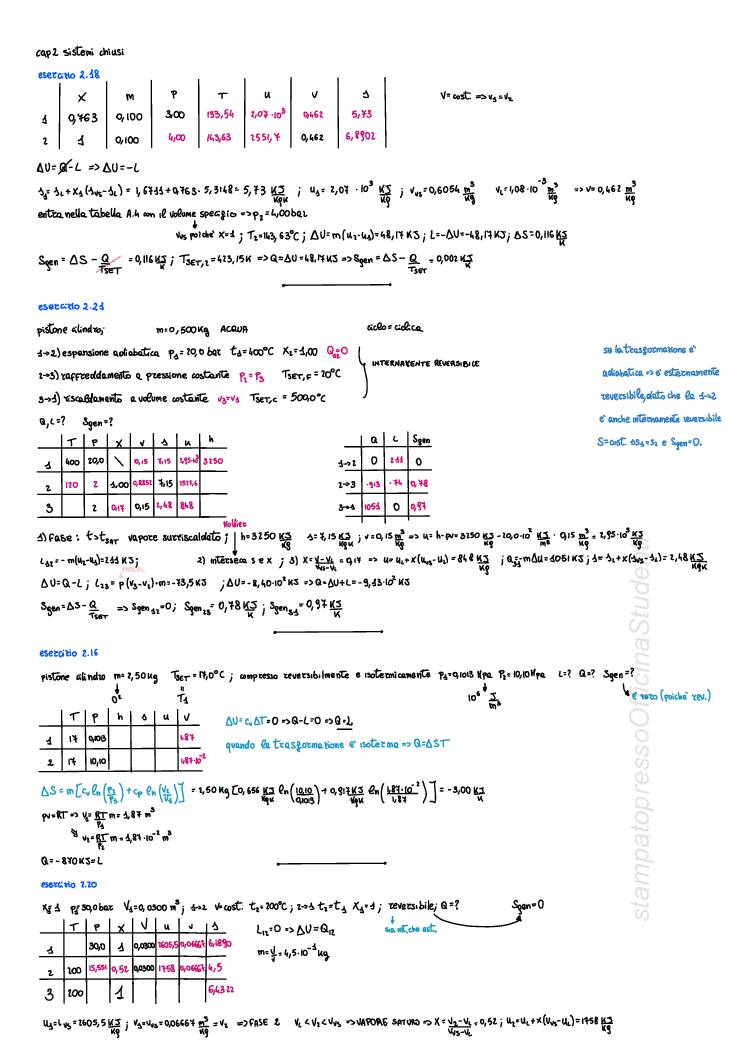 cap2 sistemi chiusi
esercizio 2.18
X m P T u V s
1 0,763 0,100 3,00 133,54 2,07·10³ 0,462 5,73
2 1 0,100 4,00 143,63 2551,7 0,462 6,8902
V=cost. => v₁=v₂
ΔU=Q-L => ΔU=-L
s₁= s_L+X₁(s_VS-s_L) = 1,6711+0,763·5,3148= 5,73 KJ/KgK ; u₁= 2,07·10³ KJ/Kg ; v_VS=0,6054 m³/Kg v_L=1,08·10⁻³ m³/Kg => v=0,462 m³/Kg
entra nella tabella A.4 con il volume specifico => p₂=4,00bar
vvs poiché X=1 ; T₂=143,63°C ; ΔU=m(u₂-u₁)=48,17KJ ; L=-ΔU=-48,17KJ ; ΔS=0,116 KJ/K
Sgen = ΔS - Q/T_SET = 0,116 KJ/K ; T_SET,2=423,15K => Q=ΔU=48,17KJ => Sgen = ΔS - Q/T_SET = 0,002 KJ/K
esercizio 2.21
pistone cilindro; m=0,500Kg ACQUA ciclo=ciclica
1->2) espansione adiabatica p₁=20,0bar t₁=400°C X₂=1,00 Q₁₂=0
2->3) raffreddamento a pressione costante P₂=P₃ T_SET,F=20°C
3->1) riscaldamento a volume costante v₃=v₁ T_SET,C=500,0°C
INTERNAMENTE REVERSIBILE
se la trasformazione e'
adiabatica => e' esternamente
reversibile, dato che la 1->2
e' anche internamente reversibile
S=cost. s₁=s₂ e Sgen=0.
Q,L=? Sgen=?
T P X v s u h
1 400 20,0 \ 0,15 7,15 2,95·10³ 3250
2 120 2 1,00 7,15
3 2 0,17 0,15 2,48 848
Q L Sgen
1->2 0 211 0
2->3 -913 -74 0,78
3->1 1051 0 0,97
Mollier
1) Fase: t>tsat vapore surriscaldato ; h=3250 KJ/Kg s=7,15 KJ/KgK ; v=0,15 m³/Kg => u=h-pv=3250 KJ/Kg -20,0·10² KJ/m³ · 0,15 m³/Kg = 2,95·10³ KJ/Kg
L₁₂=-m(u₂-u₁)=211KJ ; 2) interseca s e X ; 3) X= v-v_L/v_VS-v_L =0,17 => u=u_L+X(u_VS-u_L)=848 KJ/Kg ; Q₃₁=mΔu=1051KJ ; s=s_L+X(s_VS-s_L)=2,48 KJ/KgK
ΔU=Q-L ; L₂₃=p(v₃-v₂)·m=-73,5KJ ; ΔU=-8,40·10² KJ => Q=ΔU+L=-9,13·10² KJ
Sgen=ΔS-Q/T_SET => Sgen₁₂=0 ; Sgen₂₃=0,78 KJ/K ; Sgen₃₁=0,97 KJ/K
esercizio 2.16
pistone cilindro m=2,50Kg T_SET=17,0°C ; compresso reversibilmente e isotermicamente P₁=0,1013 Mpa P₂=10,10Mpa L=? Q=? Sgen=?
O² T₁ 10⁶ J/m³ e' zero (poiché rev.)
T P h s u V
1 17 0,1013 1,87
2 17 10,10 1,87·10⁻²
ΔU=c_vΔT=0 => Q-L=0 => Q=L
quando la trasformazione e' isoterma => Q=ΔST
ΔS=m[c_v ln(P₂/P₁)+c_p ln(V₂/V₁)] = 2,50Kg[0,656 KJ/KgK ln(10,10/0,1013)+0,917 KJ/KgK ln(1,87·10⁻²/1,87)] = -3,00 KJ/K
pv=RT => V₁=RT/P₁ m=1,87 m³
V₂=RT/P₂ m=1,87·10⁻² m³
Q=-870KJ=L
esercizio 2.20
X₁=1 p₁=30,0bar V₁=0,0300 m³ ; 1->2 V=cost. t₂=200°C ; 2->3 t₂=t₃ X₃=1 ; reversibile ; Q=? Sgen=0
sia int. che est.
T P X V u v s
1 30,0 1 0,0300 2605,5 0,06667 6,1890
2 200 15,551 0,52 0,0300 1758 0,06667 4,5
3 200 1 6,4322
L₁₂=0 => ΔU=Q₁₂
m=V/v=4,5·10⁻¹ Kg
u₁=u_VS=2605,5 KJ/Kg ; v₁=v_VS=0,06667 m³/Kg =v₂ => FASE 2 v_L<v₂<v_VS => VAPORE SATURO => X= v₂-v_L/v_VS-v_L =0,52 ; u₂=u_L+X(u_VS-u_L)=1758 KJ/Kg
stampatopressoOfficinaStudenti